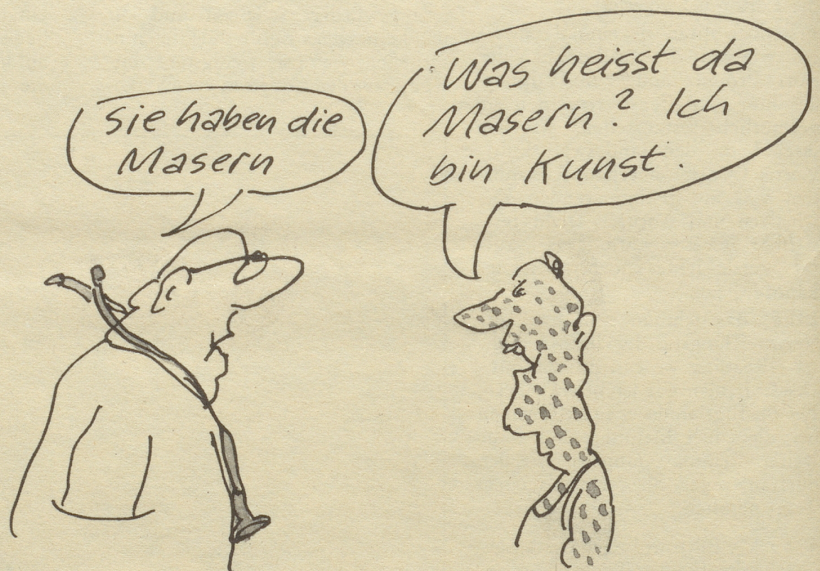 Sie haben die
Masern
Was heisst da
Masern? Ich
bin Kunst.